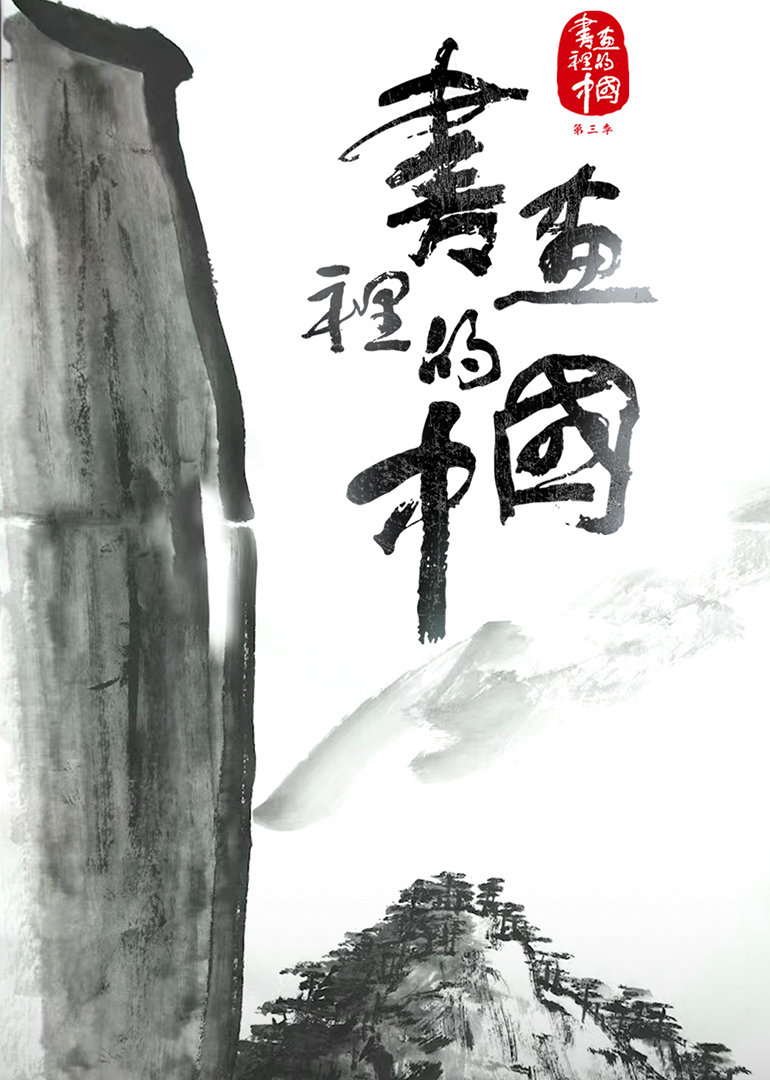 書畫
裡的
中國
第三季
書畫
裡的
中國